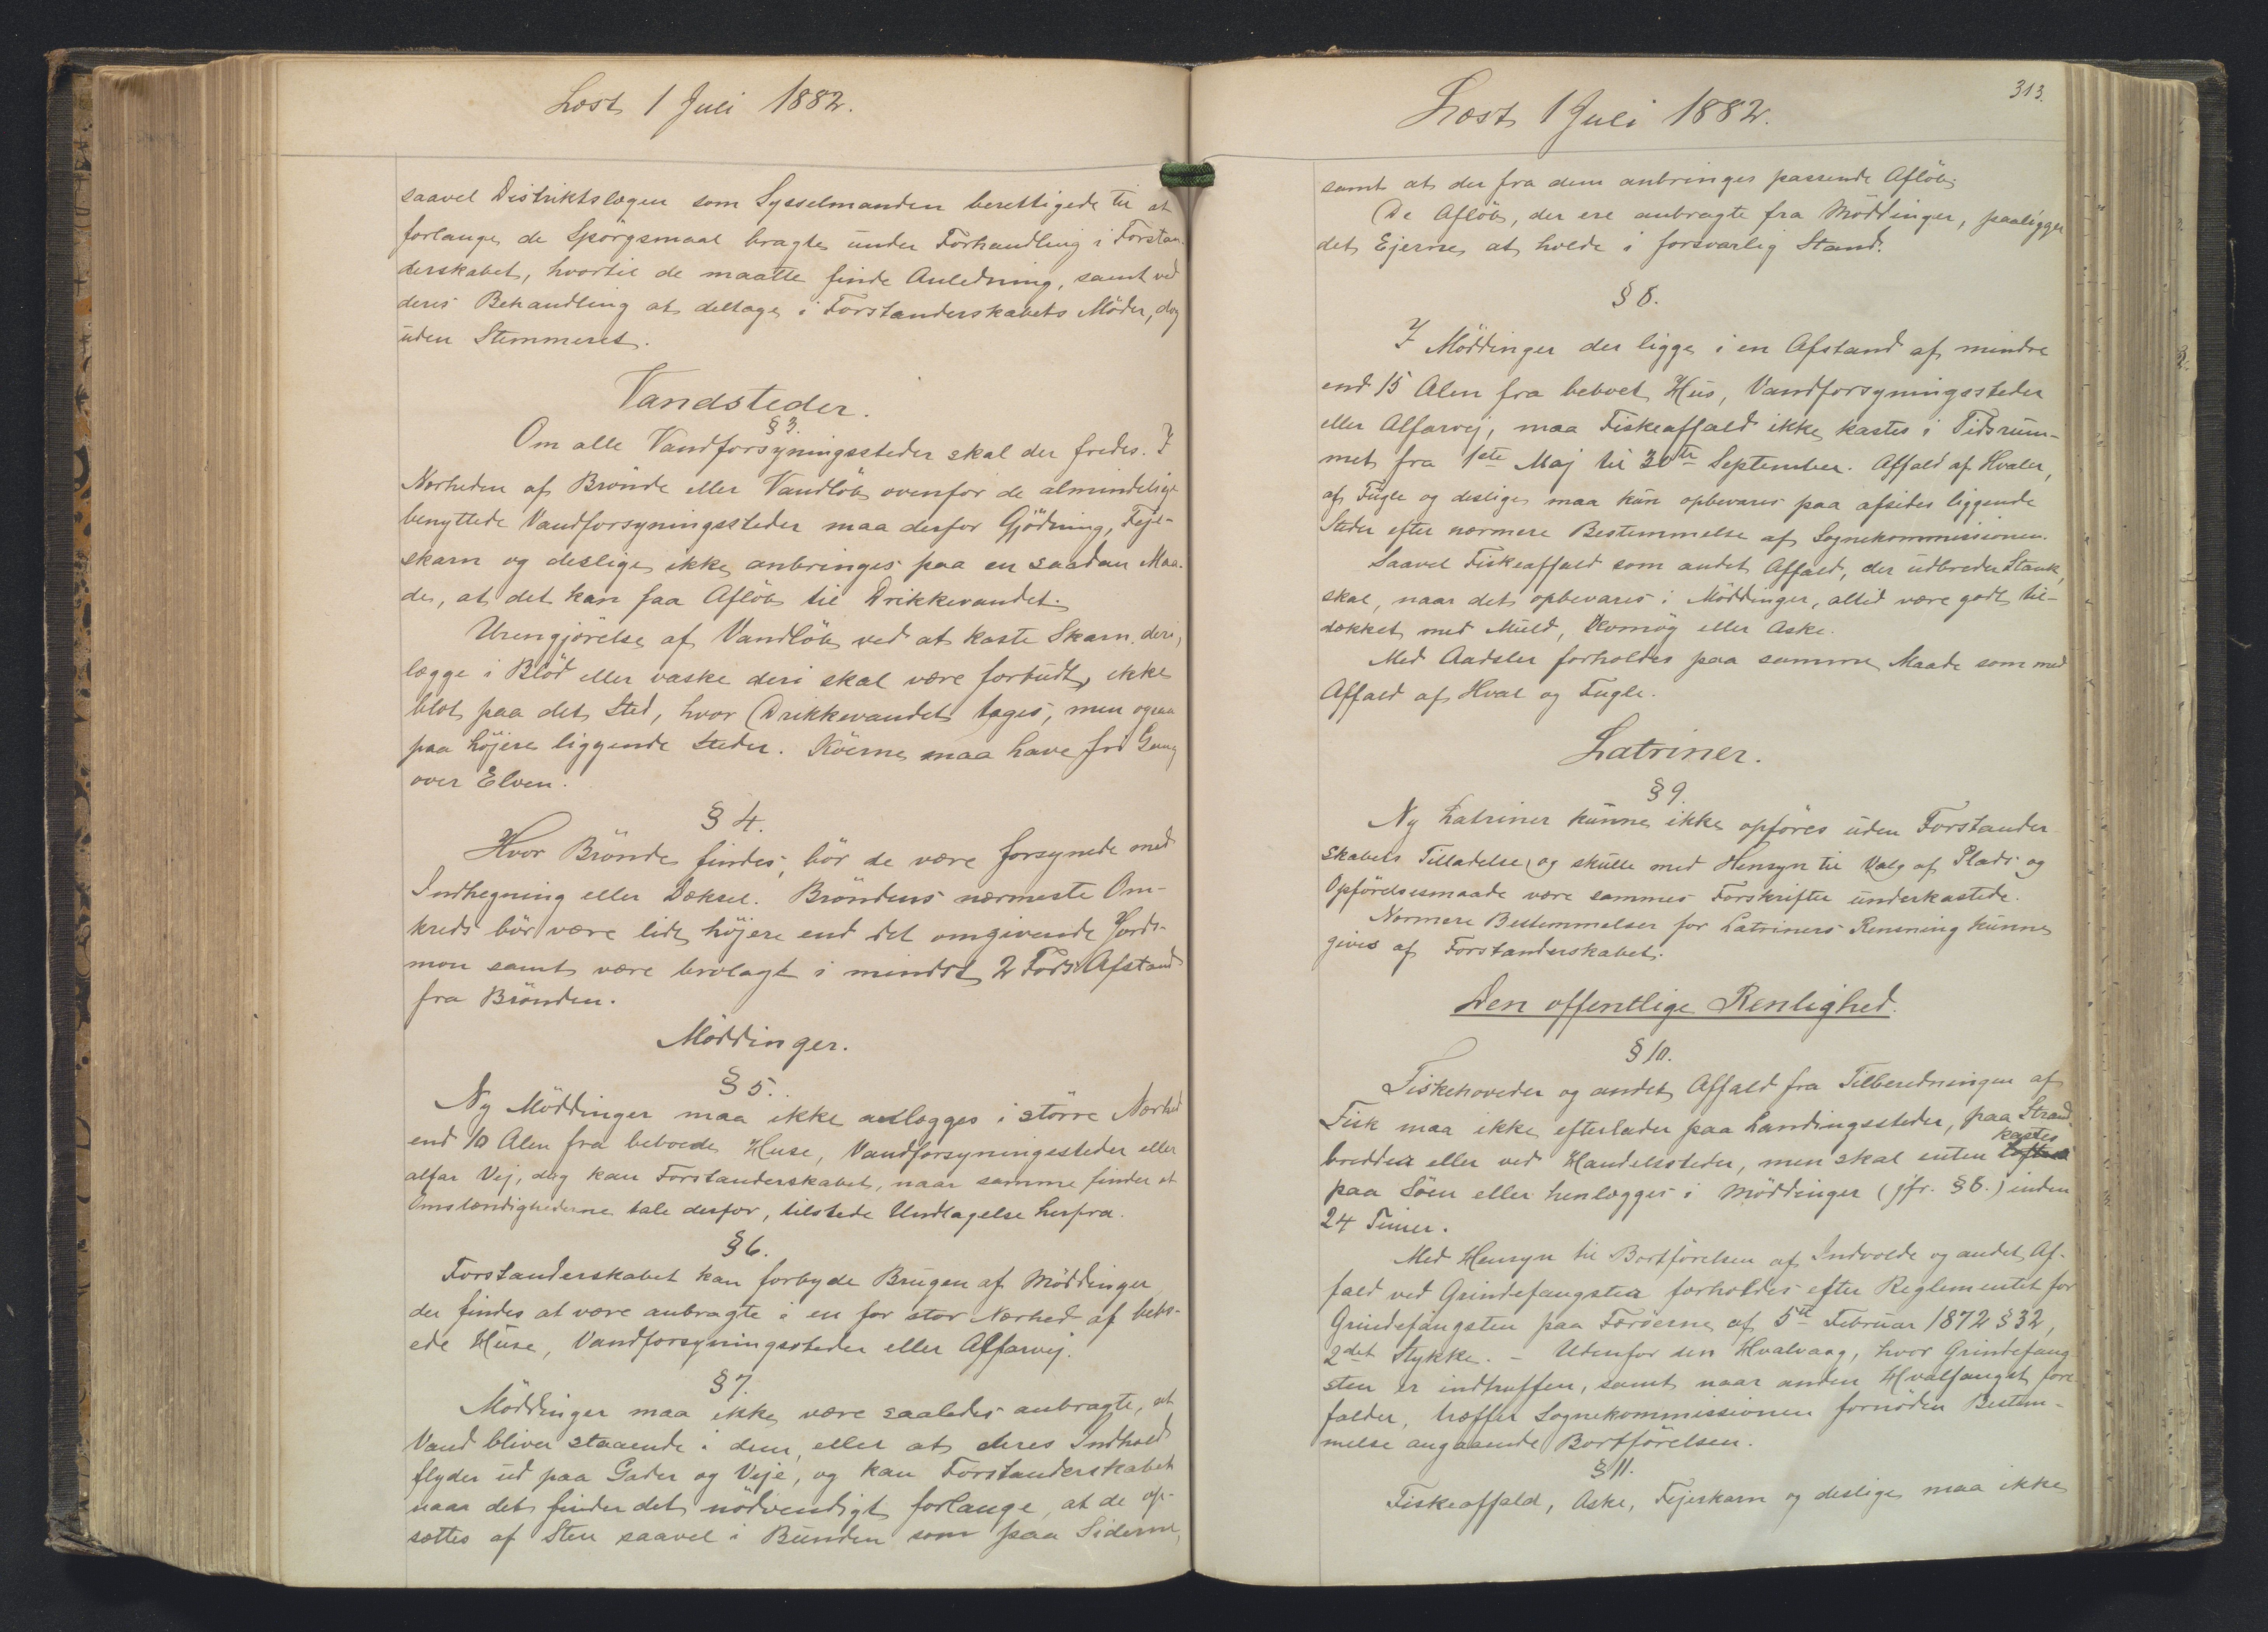 Læst 1 Juli 1882.
saavel Distriktslægen som Sysselmanden berettigede til at
forlange de Spörgsmaal bragte under Forhandling i Forstan-
derskabet, hvortil de maatte finde Anledning, samt ved
deres Behandling at deltage i Forstanderskabets Möder, dog
uden Stemmeret.
Vandsteder.
§ 3.
Om alle Vandforsyningssteder skal der fredes. I
Nærheden af Brönde eller Vandlöb ovenfor de almindelige
benyttede Vandforsyningssteder maa derfor Gjödning, Feje-
skarn og deslige ikke anbringes paa en saadan Maa-
de, at det kan faa Aflöb til Drikkevandet.
Urengjörelse af Vandlöb ved at kaste Skarn deri,
lægge i Blöd eller vaske deri skal være forbudt, ikke
blot paa det Sted, hvor Drikkevandet tages, men ogsaa
paa höjere liggende Steder. Köerne maa have fri Gang
over Elven.
§ 4.
Hvor Brönde findes, bör de være forsynede med
Indhegning eller Dæksel. Bröndens nærmeste Om-
kreds bör være lidt höjere end det omgivende Jords-
mon samt være brolagt i mindst 2 Fods Afstand
fra Brönden.
Möddinger.
§ 5.
Ny Möddinger maa ikke anlægges i större Nærhed
end 10 Alen fra beboede Huse, Vandforsyningssteder eller
alfar Vej, dog kan Forstanderskabet, naar samme finder at
Omstændighederne tale derfor, tilstede Undtagelse herfra.
§ 6.
Forstanderskabet kan forbyde Brugen af Möddinger
der findes at være anbragte i en for stor Nærhed af bebo-
ede Huse, Vandforsyningssteder eller Alfarvej.
§ 7.
Möddinger maa ikke være saaledes anbragte, at
Vand bliver staaende i dem, eller at deres Indhold
flyder ud paa Gader og Veje, og kan Forstanderskabet
naar det finder det nödvendigt forlange, at de op-
sættes af Sten saavel i Bunden som paa Siderne,
313.
Læst 1 Juli 1882.
samt at der fra dem anbringes passende Aflöb.
De Aflöb, der ere anbragte fra Möddinger, paaligger
det Ejerne at holde i forsvarlig Stand.
§ 8.
I Möddinger der ligge i en Afstand af mindre
end 15 Alen fra beboet Hus, Vandforsyningssteder
eller Alfarvej, maa Fiskeaffald ikke kastes i Tidsrum-
met fra 1ste Maj til 30te September. Affald af Hvaler,
af Fugle og deslige maa kun opbevares paa afsides liggende
Steder efter nærmere Bestemmelse af Sognekommissionen.
Saavel Fiskeaffald som andet Affald, der udbreder Stank,
skal, naar det opbevares i Möddinger, altid være godt til-
dækket med Muld, Komög eller Aske.
Med Aadsler forholdes paa samme Maade som med
Affald af Hval og Fugle.
Latriner.
§ 9.
Ny Latriner kunne ikke opföres uden Forstander-
skabets Tilladelse, og skulle med Hensyn til Valg af Plads og
Opförelsesmaade være sammes Forskrifter underkastede.
Nærmere Bestemmelser for Latriners Rensning kunne
gives af Forstanderskabet.
Den offentlige Renlighed.
§ 10.
Fiskehoveder og andet Affald fra Tilberedningen af
Fisk maa ikke efterlades paa Landingssteder, paa Strand-
bredden eller ved Handelssteder, men skal enten kastes
paa Söen eller henlægges i Möddinger (jfr. § 8.) inden
24 Timer.
Med Hensyn til Bortförelsen af Indvolde og andet Af-
fald ved Grindefangsten forholdes efter Reglementet for
Grindefangsten paa Færöerne af 5te Februar 1872 § 32,
2det Stykke. – Udenfor den Hvalvaag, hvor Grindefang-
sten er indtruffen, samt naar anden Hvalfangst fore-
falder, træffer Sognekommissionen fornöden Bestem-
melse angaaende Bortförelsen.
§ 11.
Fiskeaffald, Aske, Fejeskarn og deslige maa ikke